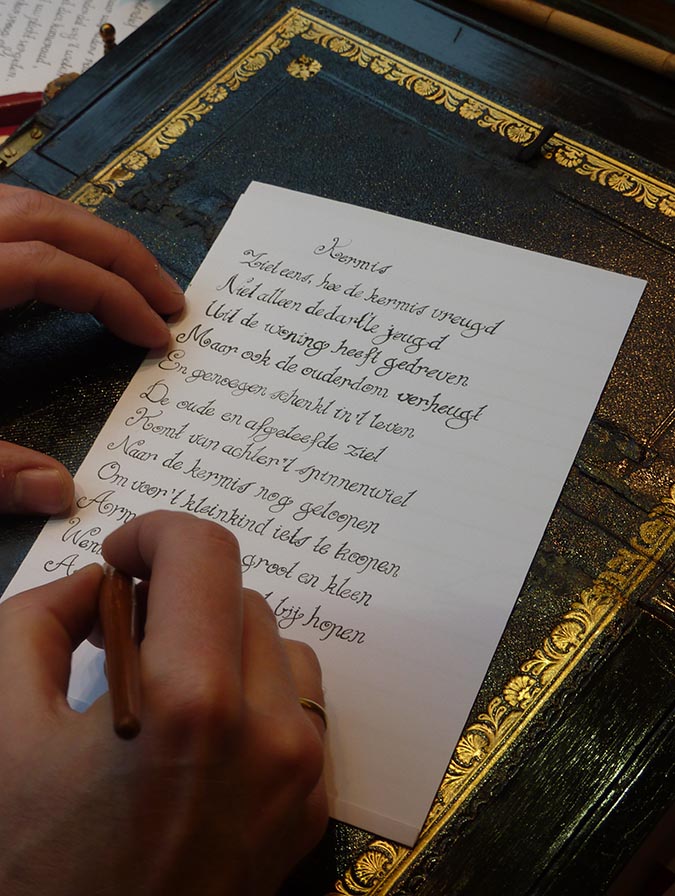 Kermis
Ziet eens, hoe de kermis vreugd
Niet alleen de dartle jeugd
Uit de woning heeft gedreven
Maar ook de ouderdom verheugt
En genoegen schenkt in 't leven
De oude en afgeleefde ziel
Komt van achter 't spinnenwiel
Naar de kermis nog geloopen
Om voor 't kleinkind iets te koopen
Arm
groot en kleen
bij hopen